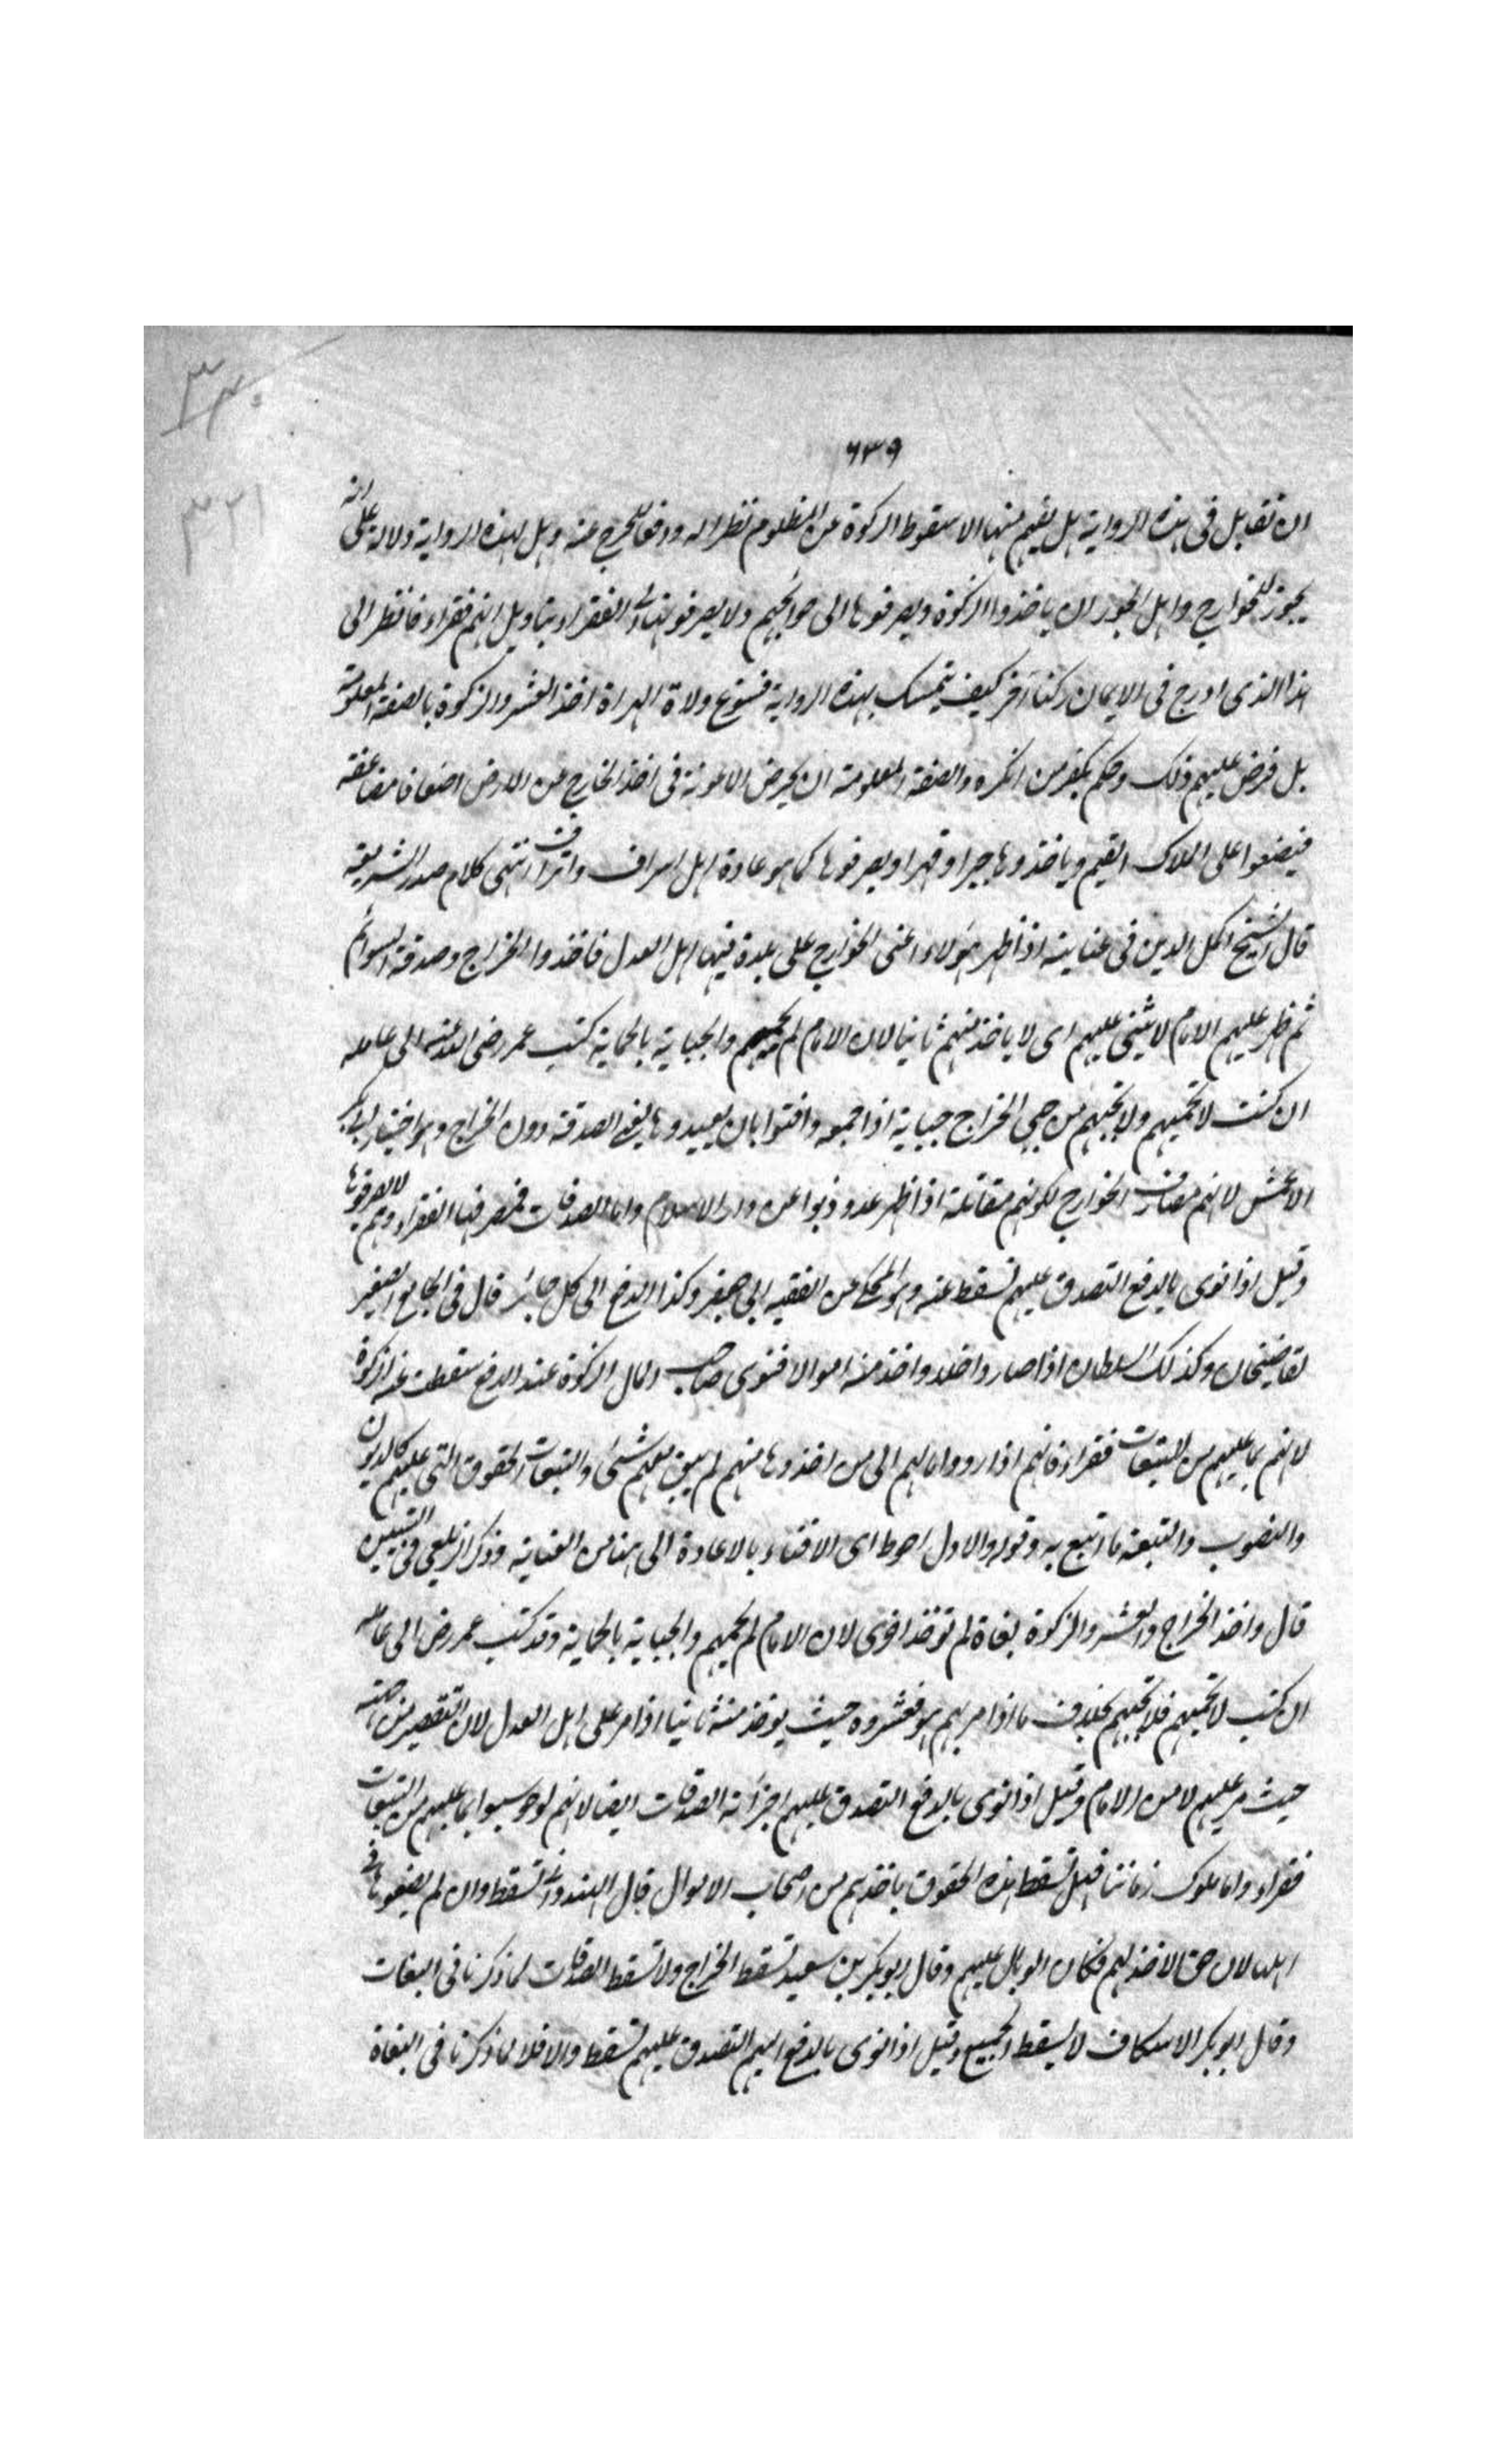 ٣٢٠
٦٣٩
٣٢١
ان تقابل فى هذه الرواية هل يفهم منها الا سقوط الزكوة عن المظلوم نظرا له ودفعا للحرج عنه وهل لهذه الرواية دلالة على انه
يجوز للخوارج واهل الجور ان ياخذوا الزكوة ويصرفوها الى حوائجهم ولا يصرفونها الى الفقراء بتاويل انهم فقراء فانظر الى
هذا الذى ادرج فى الايمان ركنا آخر كيف يتمسك بهذه الرواية فسوغ ولاة الهراة اخذ العشر والزكوة بالصفة المعلومة
بل فرض عليهم ذلك وحكم بكفر من انكره والصفة المعلومة ان يحرض الاعونة فى اخذ الخارج من الارض اضعافا مضاعفة
فيضعوا على الملاك القيم وياخذوها جبرا وقهرا ويصرفوها كما هو عادة اهل اسراف واتراف انتهى كلام صدر الشريعة
قال الشيخ اكمل الدين فى عنايته اذا ظهر هؤلاء اعنى الخوارج على بلدة فيها اهل العدل فاخذوا الخراج وصدقة السوائم
ثم ظهر عليهم الامام لا يثنى عليهم اى لا ياخذ منهم ثانيا لان الامام لم يحمهم والجباية بالحماية كتب عمر رضى الله عنه الى عامله
ان كنت لا تحميهم ولا تجبهم من جبى الخراج جباية اذا جمعه وافتوا بان يعيدوها يعنى الصدقة دون الخراج وهو اختيار ابى بكر
الاعمش لانهم مصارف الخوارج لكونهم مقاتلة اذا ظهر عدو ذبوا عن دار الاسلام واما الصدقات فمصرفها الفقراء وهم لا يصرفونها
وقيل اذا نوى بالدفع التصدق عليهم تسقط عنه وهو المحكى عن الفقيه ابى جعفر وكذا الدفع الى كل جائر قال فى الجامع الصغير
لقاضيخان وكذلك السلطان اذا صادر واخذ منه اموالا فنوى صاحب المال الزكوة عند الدفع سقطت عنه الزكوة
لانهم بما عليهم من التبعات فقراء فانهم اذا ردوا اموالهم الى من اخذوها منهم لم يبق معهم شئ والتبعات الحقوق التى عليهم كالديون
والغصوب والتبعة ما اتبع به وقوله والاول احوط اى الافتاء بالاعادة الى هنا من العناية وذكر الزيلعى فى التبيين
قال واخذ الخراج والعشر والزكوة بغاة لم تؤخذ اخرى لان الامام لم يحمهم والجباية بالحماية وقد كتب عمر رض الى عامله
ان كنت لا تحميهم فلا تجبهم بخلاف ما اذا مر بهم هو فعشروه حيث يوخذ منه ثانيا اذا مر على اهل العدل لان التقصير من جهته
حيث مر عليهم لا من الامام وقيل اذا نوى بالدفع التصدق عليهم اجزأته الصدقات ايضا لانهم لو حوسبوا بما عليهم من التبعات
فقراء واما ملوك زماننا فهل تسقط هذه الحقوق باخذهم من اصحاب الاموال قال الهندوانى تسقط وان لم يضعوها فى
اهلها لان حق الاخذ لهم فكان الوبال عليهم وقال ابوبكر بن سعيد تسقط الخراج ولا تسقط الصدقات لما ذكرنا فى البغات
وقال ابوبكر الاسكاف لا يسقط الجميع وقيل اذا نوى بالدفع اليهم التصدق عليهم تسقط والا فلا لما ذكرنا فى البغاة